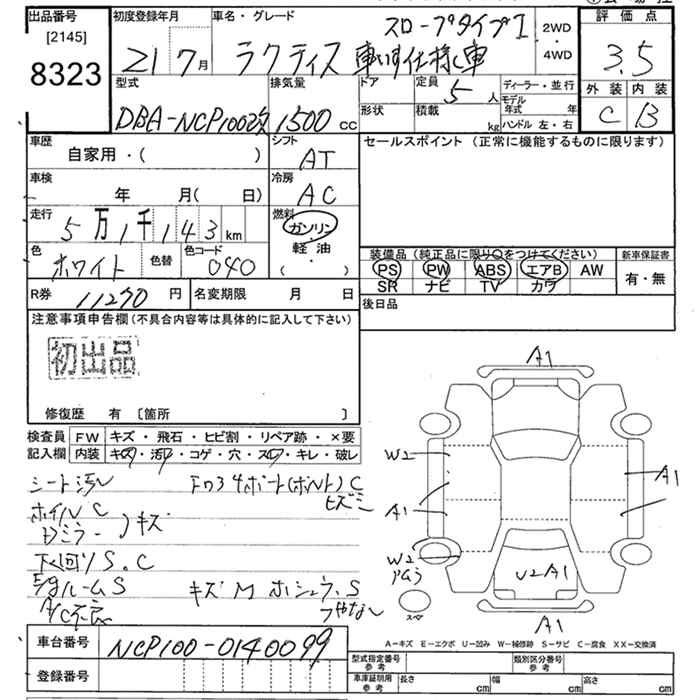 出品番号
[2145]
8323
初度登録年月
21 7月
車名・グレード
ラクティス
スロープタイプI
車いす仕様車
2WD
・
4WD
評価点
3.5
外装 内装
C B
型式
DBA-NCP100改
排気量
1500 CC
ドア
形状
定員
5人
積載
kg
ディーラー・並行
モデル年式 年
ハンドル 左・右
車歴
自家用・( )
シフト
AT
車検
年 月( 日)
冷房
AC
走行
5万1千143km
燃料
ガソリン
・
軽油
( )
色
ホワイト
色替
色コード
040
R券 11270円
名変期限 月 日
セールスポイント(正常に機能するものに限ります)
装備品(純正品に限り○をつけてください)
PS PW ABS エアB AW
SR ナビ TV カワ
新車保証書
有・無
後日品
注意事項申告欄(不具合内容等は具体的に記入して下さい)
初出品
修復歴 有 [箇所 ]
検査員記入欄
FW キズ・飛石・ヒビ割・リペア跡・×要
内装 キズ・汚れ・コゲ・穴・スレ・キレ・破レ
シート汚レ
ホイルC
Dミラー キズ
下回りS.C
E/gルームS
A/C不良
キズ M ホシュウ.S
ツヤなし
A1
W2
A1
A1
W2
U2A1
A1
スペア
A-キズ E-エクボ U-凹み W-補修跡 S-サビ C-腐食 XX-交換済
車台番号 NCP100-0140099
登録番号
型式指定番号
参考
類別区分番号
参考
車庫証明用
参考
長さ cm
幅 cm
高さ cm